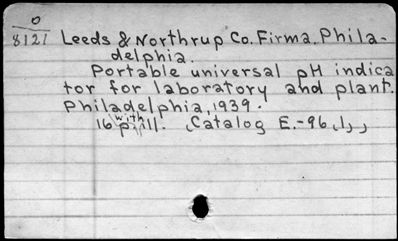 O
8121 Leeds & Northrup Co. Firma. Phila-
delphia.
Portable universal pH indica
tor for laboratory and plant.
Philadelphia, 1939.
with
16 p. ill. Catalog E.-96